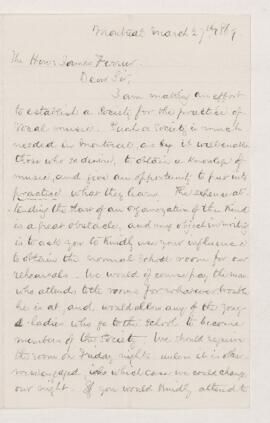 Montreal March 27th 1879.
The Honr James Ferrier.
Dear Sir,
I am making an effort
to establish a Society for the practice of
Vocal music. Such a Society is much
needed in Montreal, as by it will enable
those who so desire, to obtain a knowledge of
music, and give an opportunity to put into
practice what they learn. The expense at-
tending the start of an organization of this kind
is a great obstacle, and my object in writing
is to ask you to kindly use your influence
to obtain the Normal School room for our
rehearsals. We would of course pay the man
who attends the rooms for whatever trouble
he is at, and would allow any of the young
ladies who go to the School to become
members of the Society. We should require
the room on Friday nights unless it is other
wise engaged in which case we could change
our night. If you would kindly attend to